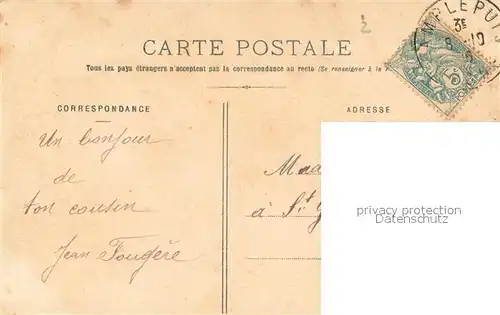 CARTE POSTALE
Tous les pays étrangers n'acceptent pas la correspondance au recto (Se renseigner à la
CORRESPONDANCE
ADRESSE
Un bonjour
de
ton cousin
Jean Fougère
à St
privacy protection
Datenschutz
3E
5